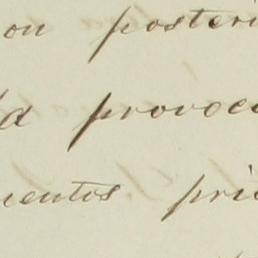 on posteri
d provoca
mentos pri